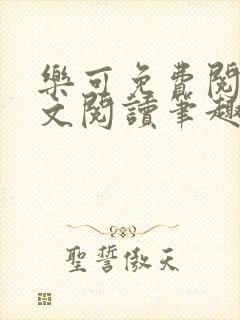 樂可免費閱
文閱讀筆趣
聖誓傲天